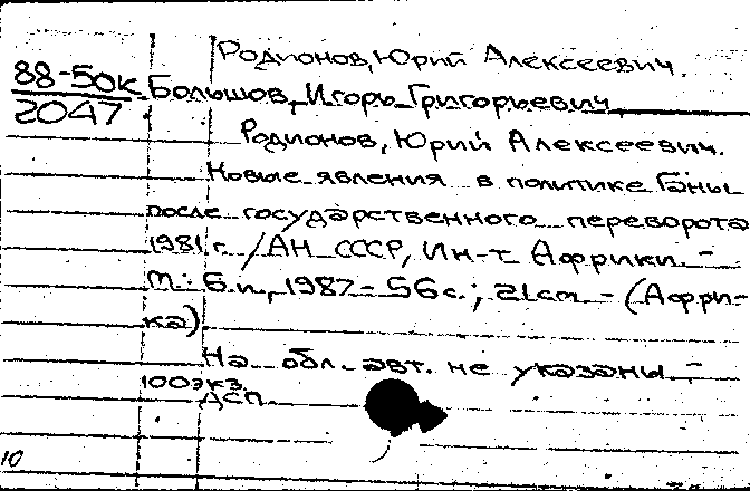 Родионов, Юрий Алексеевич.
88-50к
2047
Большов, Игорь Григорьевич,
Родионов, Юрий Алексеевич.
Новые явления в политике Ганы
после государственного переворота
1981 г. / АН СССР, Ин-т Африки. -
М.: Б.и., 1987 - 56 с.; 21 см. - (Афри-
ка)
На обл. авт. не указаны. -
100 экз.
ДСП
10